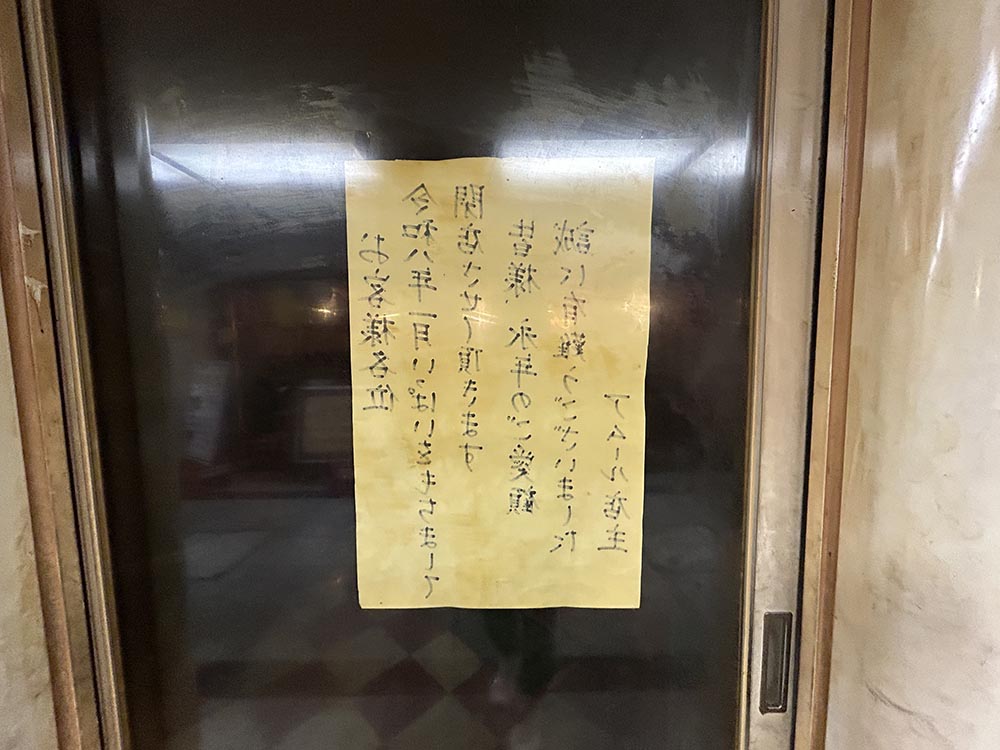 お客様各位
令和八年一月いっぱいをもちまして
閉店させて頂きます
皆様 永年のご愛顧
誠に有難うございました
アムール店主